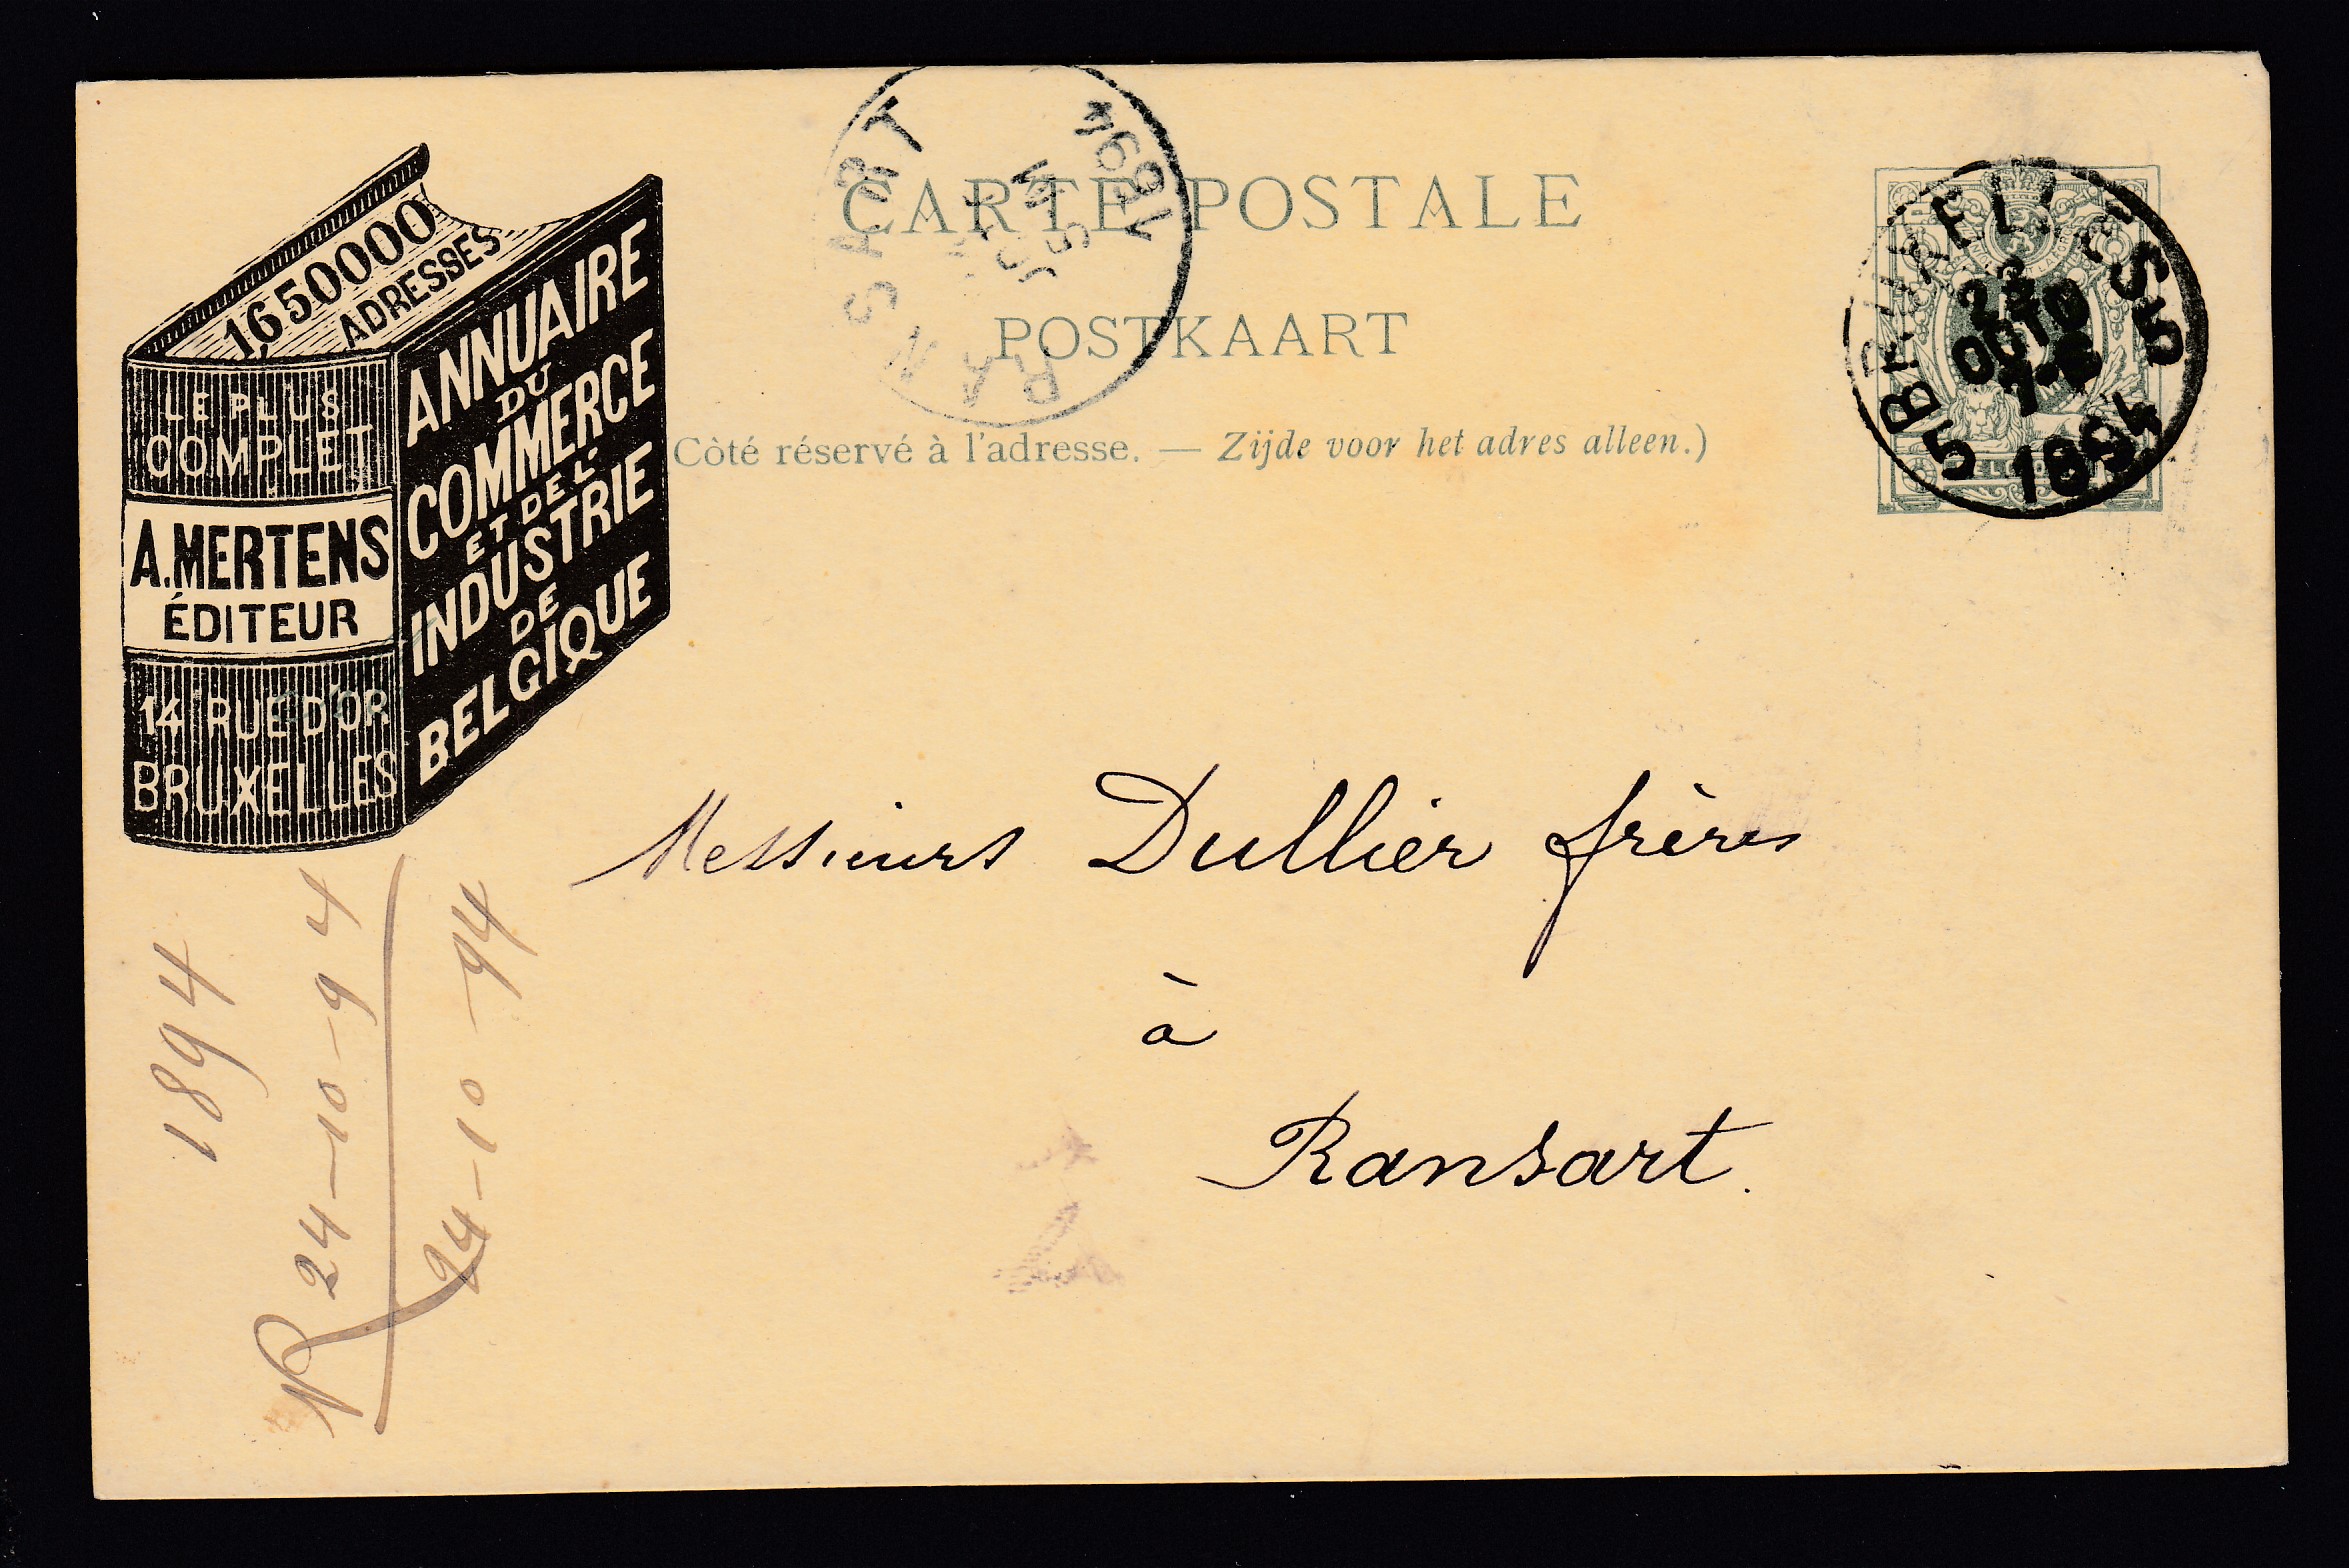 1650000
ADRESSES
LE PLUS
COMPLET
A. MERTENS
ÉDITEUR
14 RUE D'OR
BRUXELLES
ANNUAIRE
DU
COMMERCE
ET DE L'
INDUSTRIE
DE
BELGIQUE
RANSART
1894
CARTE POSTALE
POSTKAART
Côté réservé à l'adresse. — Zijde voor het adres alleen.)
5 BRUXELLES 5
23
OCTO
1894
Messieurs Dullier frères
à
Ransart.
1894
24-10-94
R
24-10-94